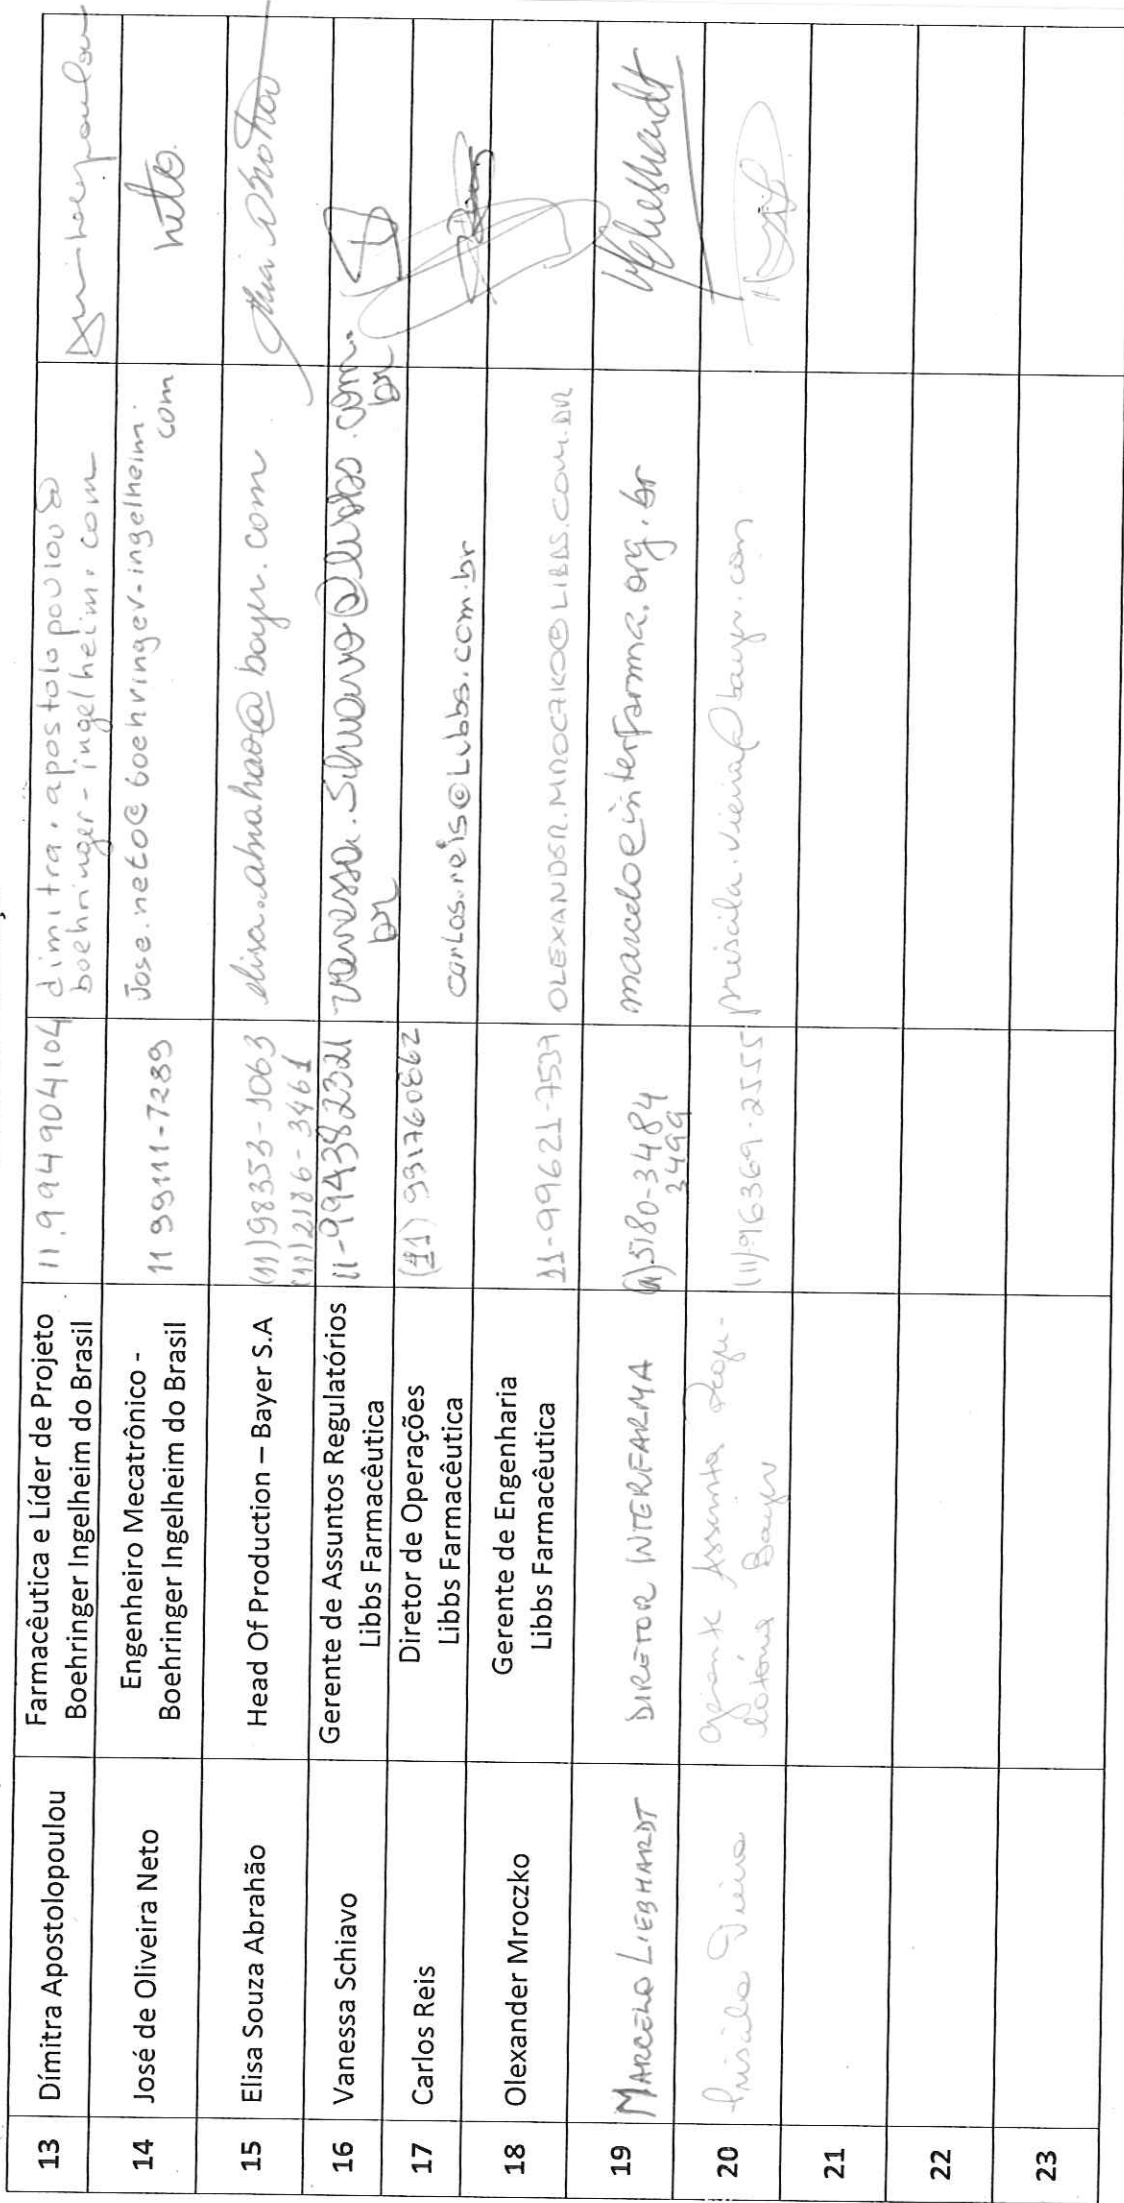 13
Dímitra Apostolopoulou
Farmacêutica e Líder de Projeto
Boehringer Ingelheim do Brasil
11.994904104
dimitra.apostolopoulou@
boehringer-ingelheim.com
14
José de Oliveira Neto
Engenheiro Mecatrônico -
Boehringer Ingelheim do Brasil
11 99111-7289
Jose.neto@boehringer-ingelheim.
com
neto.
15
Elisa Souza Abrahão
Head Of Production – Bayer S.A
(11)98353-1063
(11)2186-3461
elisa.abrahao@bayer.com
16
Vanessa Schiavo
Gerente de Assuntos Regulatórios
Libbs Farmacêutica
11-994382321
vanessa.schiavo@libbs.com.
br
br
17
Carlos Reis
Diretor de Operações
Libbs Farmacêutica
(11)
carlos.reis@Libbs.com.br
18
Olexander Mroczko
Gerente de Engenharia
Libbs Farmacêutica
11-99621-7537
OLEXANDER.MROCZKO@LIBBS.COM.BR
19
MARCELO LIEBHARDT
DIRETOR INTERFARMA
(11)5180-3484
3499
marcelo@interfarma.org.br
20
Priscila Vieira
Gerente Assuntos Regu-
latórios Bayer
(11)96369-2555
priscila.vieira@bayer.com
21
22
23